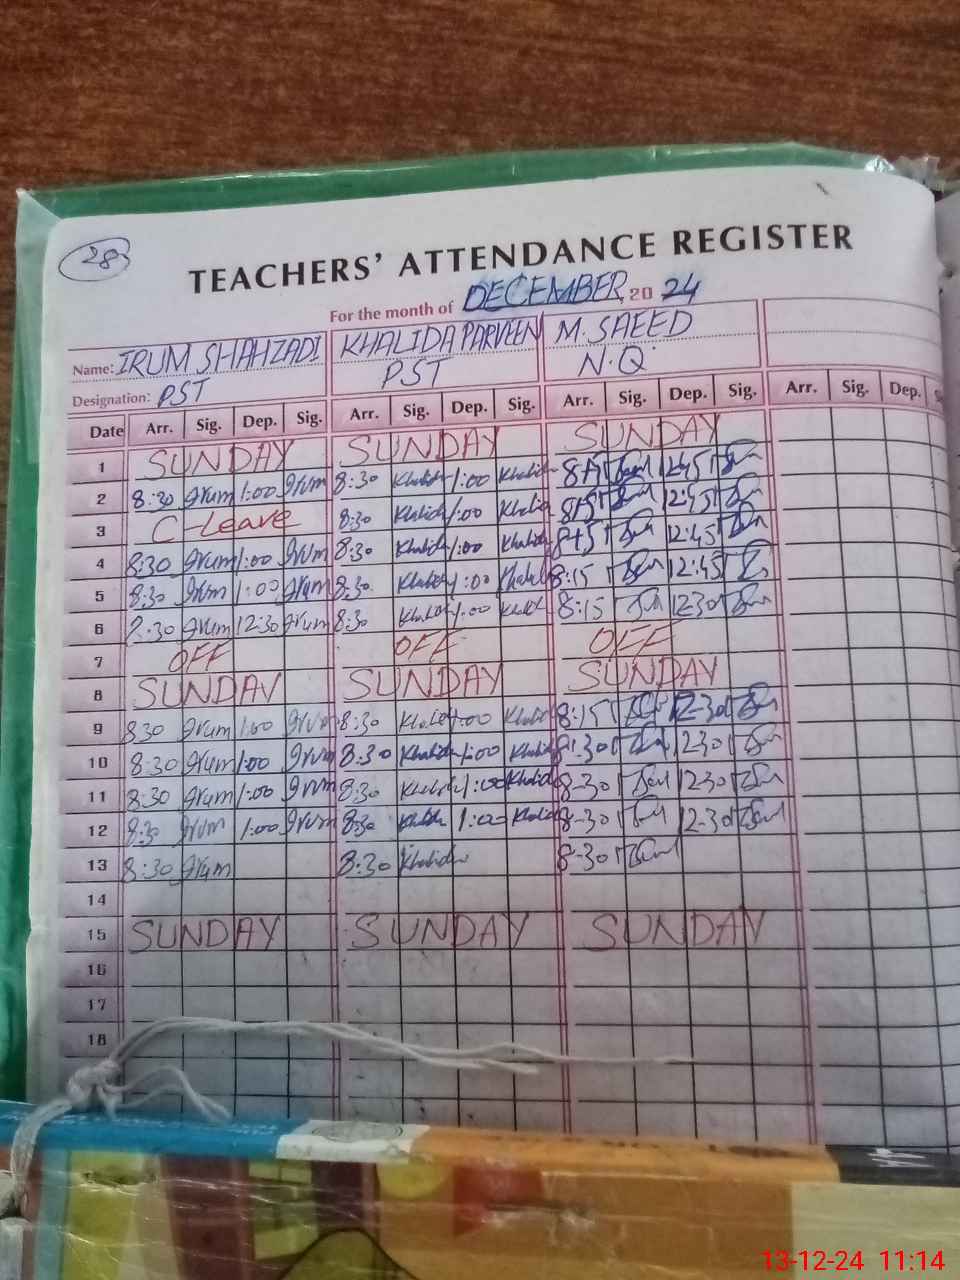 28
TEACHERS' ATTENDANCE REGISTER
For the month of DECEMBER 2024
Name: IRUM SHAHZADI KHALIDA PARVEEN M. SAEED
Designation: PST PST N.Q
Date Arr. Sig. Dep. Sig. Arr. Sig. Dep. Sig. Arr. Sig. Dep. Sig. Arr. Sig. Dep.
1 SUNDAY SUNDAY SUNDAY
2 8:30 Irum 1:00 Irum 8:30 Khalida 1:00 Khalida 8:15 12:45
3 C-Leave 8:30 Khalida 1:00 Khalida 8:15 12:45
4 8:30 Irum 1:00 Irum 8:30 Khalida 1:00 Khalida 8:15 12:45
5 8:30 Irum 1:00 Irum 8:30 Khalida 1:00 Khalida 8:15 12:45
6 8:30 Irum 12:30 Irum 8:30 Khalida 1:00 8:15 12:30
7 OFF OFF OFF
8 SUNDAY SUNDAY SUNDAY
9 830 Irum 1:00 Irum 8:30 Khalida 1:00 Khalida 8:15 12-30
10 8:30 Irum 1:00 Irum 8:30 Khalida 1:00 Khalida 8:30 1230
11 8:30 Irum 1:00 Irum 8:30 Khalida 1:00 Khalida 8-30 12-30
12 8:30 Irum 1:00 Irum 8:30 Khalida 1:00 Khalida 8-30 12-30
13 8:30 Irum 8:30 Khalida 8-30
14
15 SUNDAY SUNDAY SUNDAY
16
17
18
13-12-24 11:14